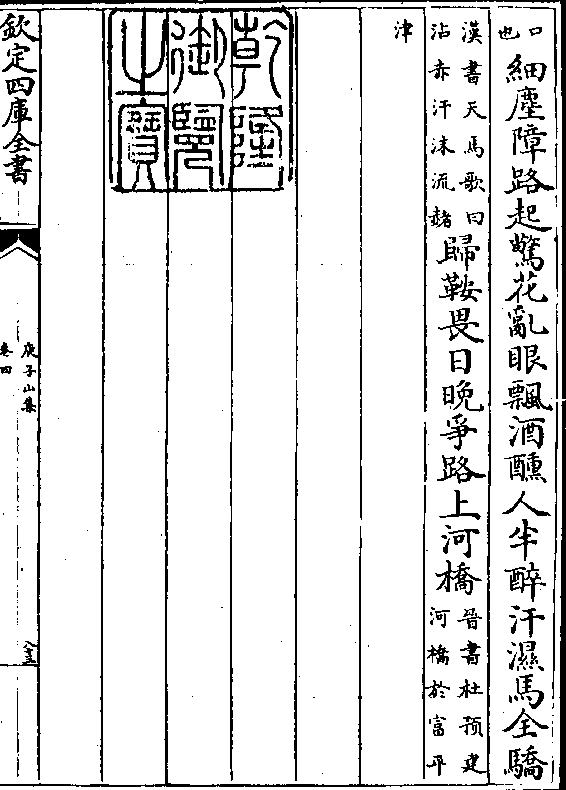 口
也
細塵障路起驚花亂眼飄酒醺人半醉汗濕馬全驕
漢書天馬歌曰
沾赤汗沫流赭
歸鞍畏日晚爭路上河橋
晉書杜預建
河橋於富平
津
乾隆
御覽
之寶
欽定四庫全書
庾子山集
卷四